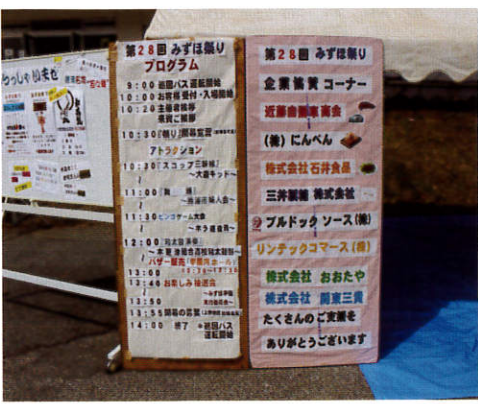 らっしゃいませ
第28回 みずほ祭り
プログラム
9:00 巡回バス運転開始
10:00 お客様受付・入場開始
10:20 主催者挨拶
来賓ご挨拶
10:30「祭り」開幕宣言
アトラクション
10:30「スコップ三味線」
～大森キッド～
11:00
～婦人会～
11:30 ビンゴゲーム大会
12:00
バザー販売
13:00
13:40 お楽しみ抽選会
13:50
13:55 閉幕の言葉
14:00 終了 ＊巡回バス
運転開始
第28回 みずほ祭り
企業協賛 コーナー
近藤自動車商会
(株)にんべん
株式会社石井食品
三井製糖 株式会社
ブルドック ソース(株)
リンテックコマース(株)
株式会社 おおたや
株式会社 関東三貴
たくさんのご支援を
ありがとうございます